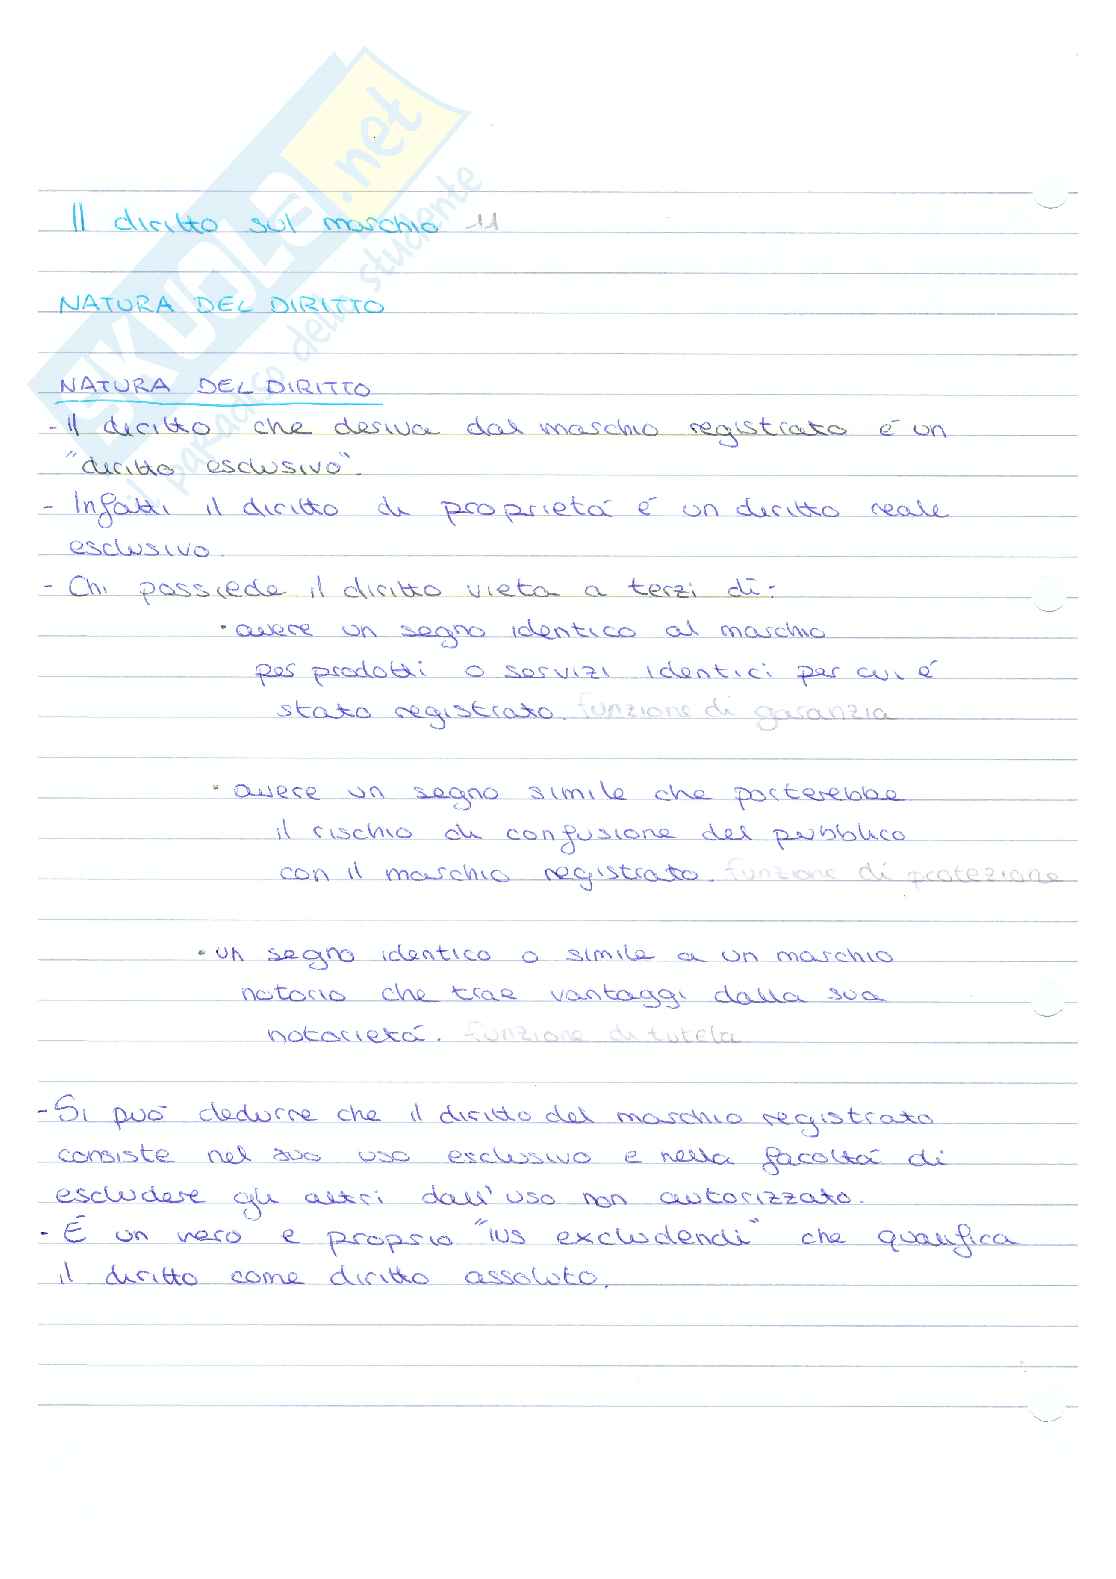 SKUOLA.net
il paradiso dello studente
Il diritto sul marchio 11
NATURA DEL DIRITTO
NATURA DEL DIRITTO
- Il diritto che deriva dal marchio registrato é un
"diritto esclusivo".
- Infatti il diritto di proprietá é un diritto reale
esclusivo.
- Chi possiede il diritto vieta a terzi di:
• avere un segno identico al marchio
per prodotti o servizi identici per cui é
stato registrato. funzione di garanzia
• avere un segno simile che porterebbe
il rischio di confusione del pubblico
con il marchio registrato. funzione di protezione
• un segno identico o simile a un marchio
notorio che trae vantaggi dalla sua
notorietá. funzione di tutela
- Si puó dedurre che il diritto del marchio registrato
consiste nel suo uso esclusivo e nella facoltá di
escludere gli altri dall'uso non autorizzato.
- É un vero e proprio "ius excludendi" che qualifica
il diritto come diritto assoluto.